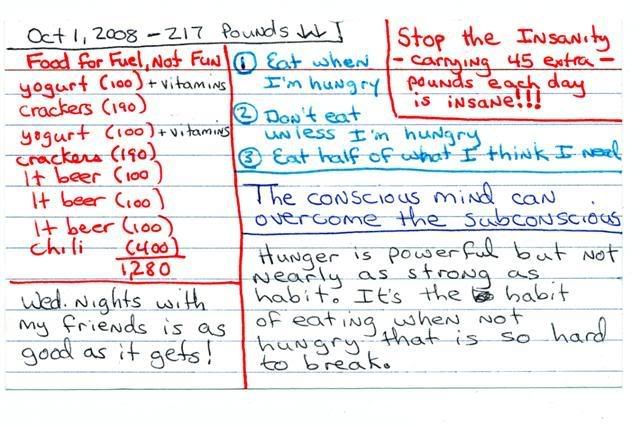 Oct 1, 2008 - 217 Pounds
Food for Fuel, Not Fun
yogurt (100) + vitamins
crackers (190)
yogurt (100) + vitamins
crackers (190)
lt beer (100)
lt beer (100)
lt beer (100)
chili (400)
1,280
Wed. Nights with
my friends is as
good as it gets!
① Eat when
I'm hungry
② Don't eat
unless I'm hungry
③ Eat half of what I think I need
Stop the Insanity
- carrying 45 extra -
pounds each day
is insane!!!
The conscious mind can
overcome the subconscious
Hunger is powerful but not
nearly as strong as
habit. It's the habit
of eating when not
hungry that is so hard
to break.